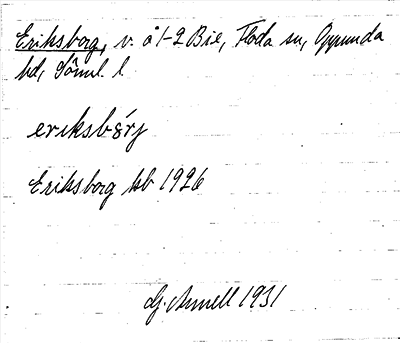 Eriksborg, v. å 1-2 Bie, Floda sn, Oppunda
hd, Söml. l.
eriksbórj
Eriksborg kb 1926
G. Annell 1931